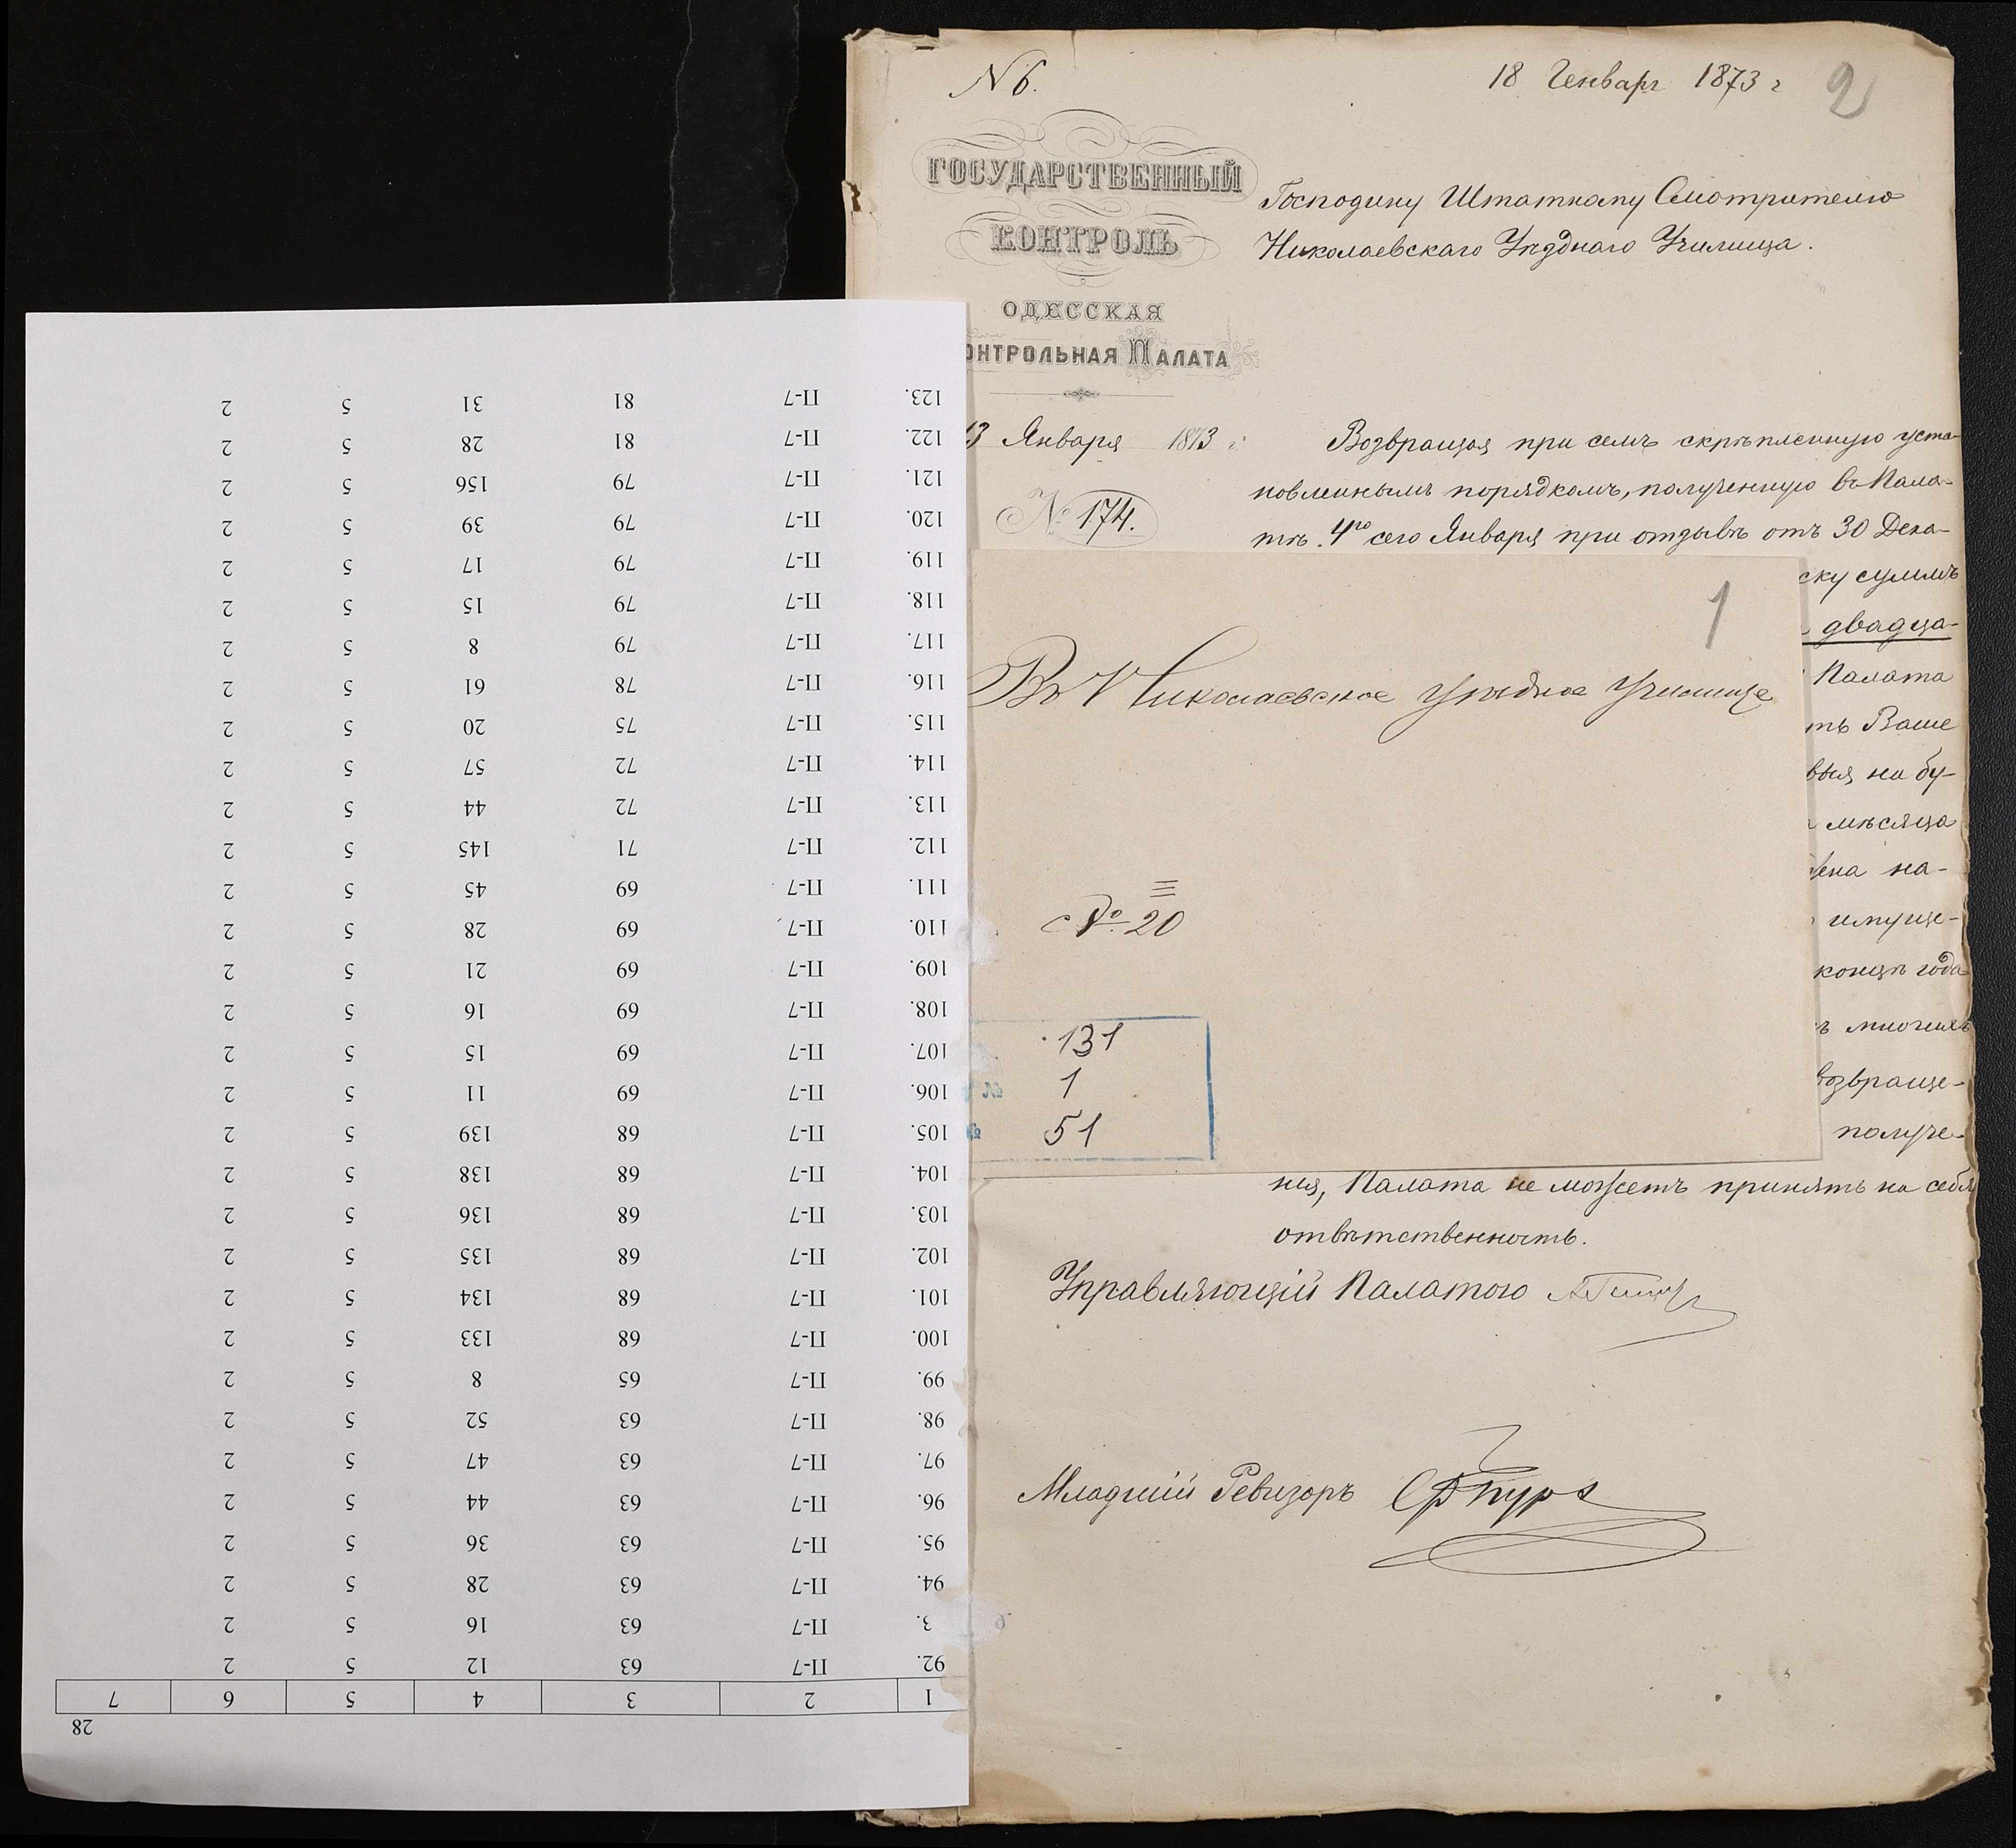 N 6.
18 Генваря 1873 г
2
ГОСУДАРСТВЕННЫЙ
КОНТРОЛЬ
ОДЕССКАЯ
ОНТРОЛЬНАЯ ПАЛАТА
13 Января 1873 г.
№ 174.
Господину Штатному Смотрителю
Николаевскаго Уѣзднаго Училища.
Возвращая при семъ скрѣпленную уста-
новленнымъ порядкомъ, полученную въ Пала-
тѣ 4го сего Января при отзывѣ отъ 30 Дека-
ску суммъ
двадца-
Палата
ть Ваше
выя на бу-
мѣсяца
на-
имуще-
концѣ года
многихъ
возвраще-
получе-
нія, Палата не можетъ принять на себя
отвѣтственность.
Управляющій Палатою
Младшій Ревизоръ
1
Въ Николаевское Уѣздное Училище
№ 20
131
№ 1
№ 51
28
1 2 3 4 5 6 7
92. П-7 63 12 5 2
3. П-7 63 16 5 2
94. П-7 63 28 5 2
95. П-7 63 36 5 2
96. П-7 63 44 5 2
97. П-7 63 47 5 2
98. П-7 63 52 5 2
99. П-7 65 8 5 2
100. П-7 68 133 5 2
101. П-7 68 134 5 2
102. П-7 68 135 5 2
103. П-7 68 136 5 2
104. П-7 68 138 5 2
105. П-7 68 139 5 2
106. П-7 69 11 5 2
107. П-7 69 15 5 2
108. П-7 69 16 5 2
109. П-7 69 21 5 2
110. П-7 69 28 5 2
111. П-7 69 45 5 2
112. П-7 71 145 5 2
113. П-7 72 44 5 2
114. П-7 72 57 5 2
115. П-7 75 20 5 2
116. П-7 78 61 5 2
117. П-7 79 8 5 2
118. П-7 79 15 5 2
119. П-7 79 17 5 2
120. П-7 79 39 5 2
121. П-7 79 156 5 2
122. П-7 81 28 5 2
123. П-7 81 31 5 2